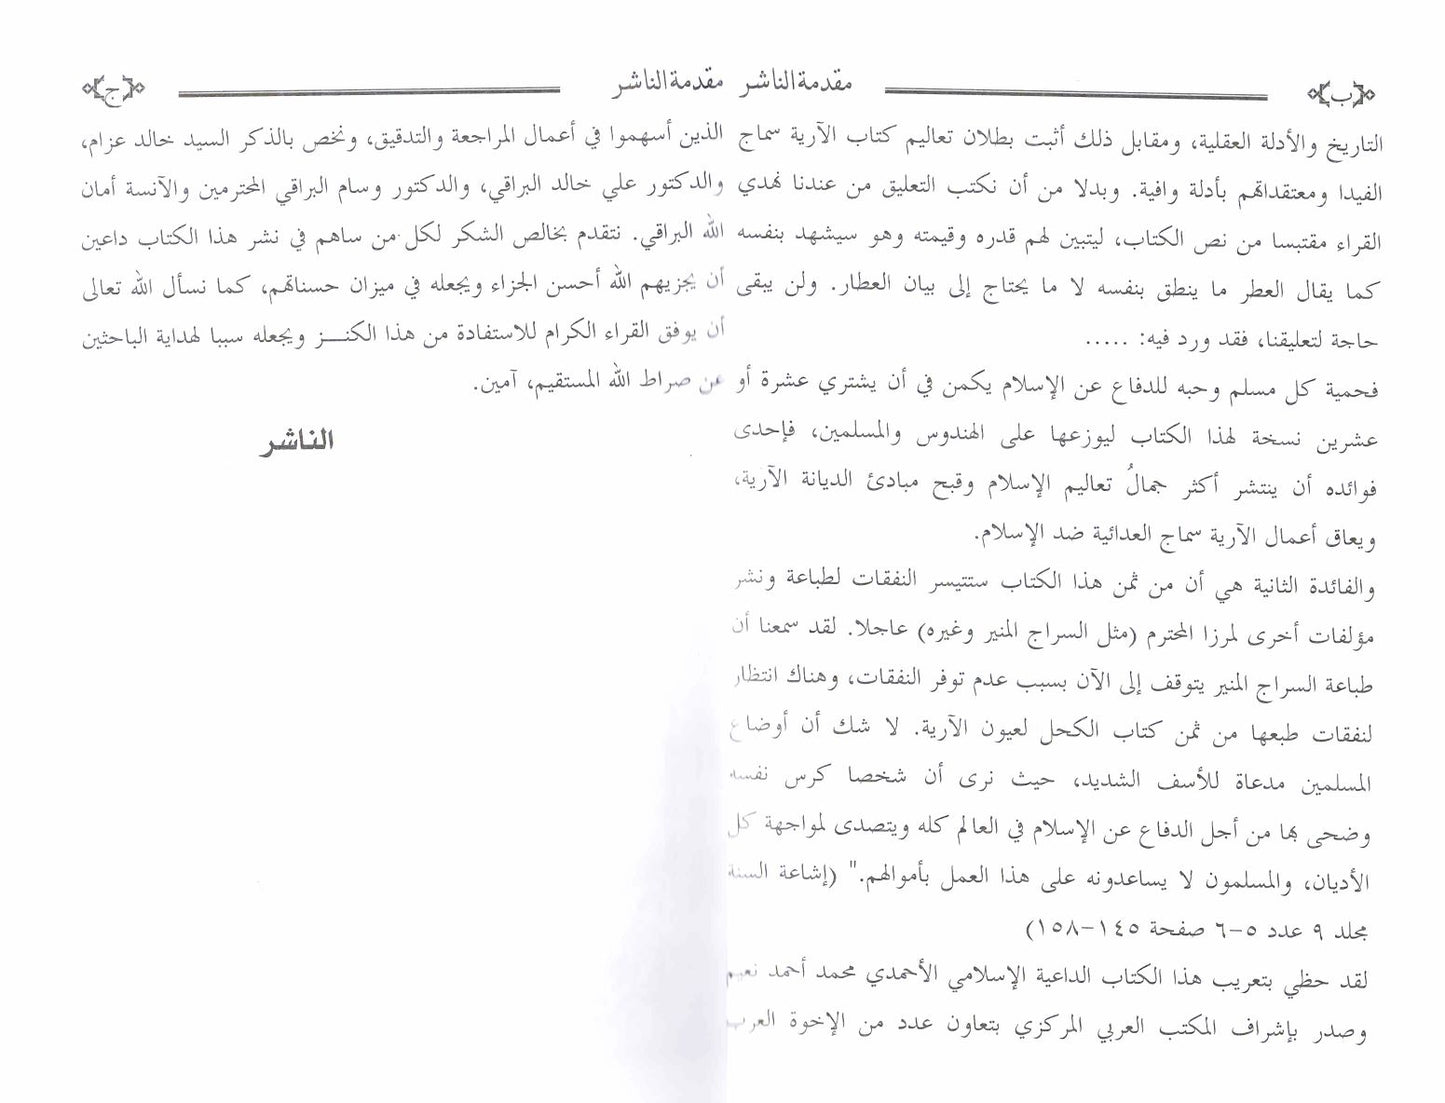 مقدمة الناشر
﴿ب﴾
التاريخ والأدلة العقلية، ومقابل ذلك أثبت بطلان تعاليم كتاب الآرية سماج
الفيدا ومعتقداتهم بأدلة وافية. وبدلا من أن نكتب التعليق من عندنا نهدي
القراء مقتبسا من نص الكتاب، ليتبين لهم قدره وقيمته وهو سيشهد بنفسه
كما يقال العطر ما ينطق بنفسه لا ما يحتاج إلى بيان العطار. ولن يبقى
حاجة لتعليقنا، فقد ورد فيه: .....
فحمية كل مسلم وحبه للدفاع عن الإسلام يكمن في أن يشتري عشرة أو
عشرين نسخة لهذا الكتاب ليوزعها على الهندوس والمسلمين، فإحدى
فوائده أن ينتشر أكثر جمالُ تعاليم الإسلام وقبح مبادئ الديانة الآرية،
ويعاق أعمال الآرية سماج العدائية ضد الإسلام.
والفائدة الثانية هي أن من ثمن هذا الكتاب ستتيسر النفقات لطباعة ونشر
مؤلفات أخرى لمرزا المحترم (مثل السراج المنير وغيره) عاجلا. لقد سمعنا أن
طباعة السراج المنير يتوقف إلى الآن بسبب عدم توفر النفقات، وهناك انتظار
لنفقات طبعها من ثمن كتاب الكحل لعيون الآرية. لا شك أن أوضاع
المسلمين مدعاة للأسف الشديد، حيث نرى أن شخصا كرس نفسه
وضحى بها من أجل الدفاع عن الإسلام في العالم كله ويتصدى لمواجهة كل
الأديان، والمسلمون لا يساعدونه على هذا العمل بأموالهم." (إشاعة السنة
مجلد ٩ عدد ٥-٦ صفحة ١٤٥-١٥٨)
لقد حظي بتعريب هذا الكتاب الداعية الإسلامي الأحمدي محمد أحمد نعيم
وصدر بإشراف المكتب العربي المركزي بتعاون عدد من الإخوة العرب
مقدمة الناشر
﴿ج﴾
الذين أسهموا في أعمال المراجعة والتدقيق، ونخص بالذكر السيد خالد عزام،
والدكتور علي خالد البراقي، والدكتور وسام البراقي المحترمين والآنسة أمان
الله البراقي. نتقدم بخالص الشكر لكل من ساهم في نشر هذا الكتاب داعين
أن يجزيهم الله أحسن الجزاء ويجعله في ميزان حسناتهم، كما نسأل الله تعالى
أن يوفق القراء الكرام للاستفادة من هذا الكنـــز ويجعله سببا لهداية الباحثين
عن صراط الله المستقيم، آمين.
الناشر